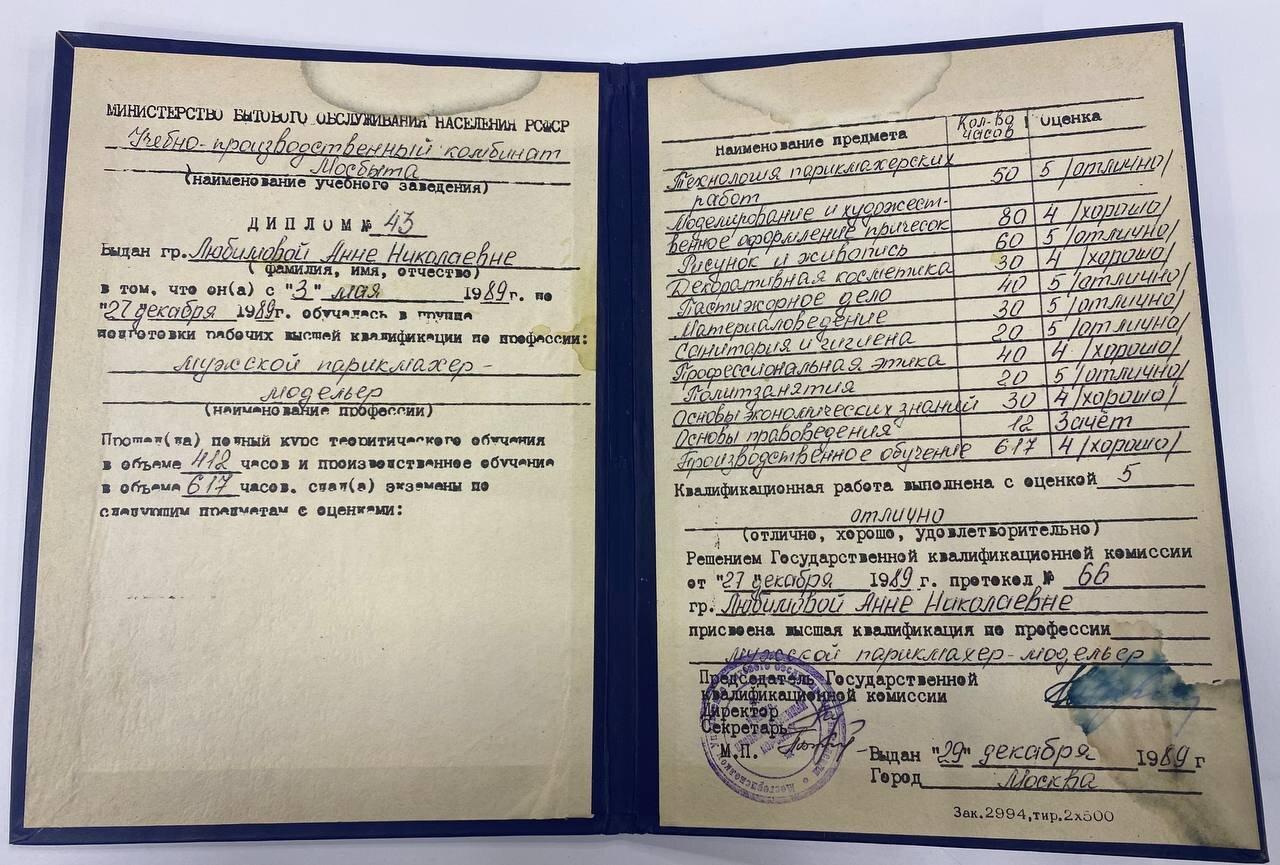 МИНИСТЕРСТВО БЫТОВОГО ОБСЛУЖИВАНИЯ НАСЕЛЕНИЯ РСФСР
Учебно-производственный комбинат
Мосбыта
(наименование учебного заведения)
ДИПЛОМ № 43
Выдан гр. Любимовой Анне Николаевне
(фамилия, имя, отчество)
в том, что он(а) с "3" мая 1989 г. по
"27" декабря 1989 г. обучалась в группе
подготовки рабочих высшей квалификации по профессии:
мужской парикмахер-
модельер
(наименование профессии)
Прошел(ла) полный курс теоритического обучения
в объеме 412 часов и производственное обучение
в объеме 617 часов. сдал(а) экзамены по
следующим предметам с оценками:
Наименование предмета Кол-во часов Оценка
Технология парикмахерских
работ 50 5 /отлично/
Моделирование и художест-
венное оформление причесок 80 4 /хорошо/
Рисунок и живопись 60 5 /отлично/
Декоративная косметика 30 4 /хорошо/
Пастижорное дело 40 5 /отлично/
Материаловедение 30 5 /отлично/
Санитария и гигиена 20 5 /отлично/
Профессиональная этика 40 4 /хорошо/
Политзанятия 20 5 /отлично/
Основы экономических знаний 30 4 /хорошо/
Основы правоведения 12 Зачёт
Производственное обучение 617 4 /хорошо/
Квалификационная работа выполнена с оценкой 5
отлично
(отлично, хорошо, удовлетворительно)
Решением Государственной квалификационной комиссии
от "27" декабря 1989 г. протокол № 66
гр. Любимовой Анне Николаевне
присвоена высшая квалификация по профессии
мужской парикмахер-модельер
Председатель Государственной
квалификационной комиссии
Директор
Секретарь
М.П.
Выдан "29" декабря 1989 г
Город Москва
Зак.2994,тир.2х500